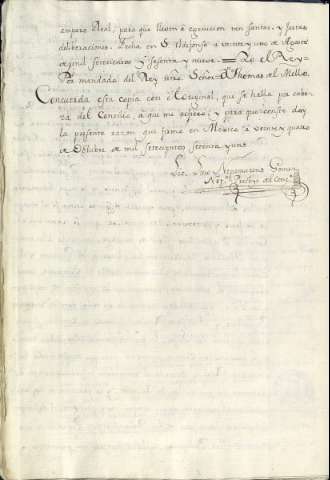 amparo Real, para que lleven á egecucion tan santas, y justas
deliberaciones. Fecha en Sn Ildefonso á veinte y uno de Agosto
de mil setecientos y sesenta y nueve. = Yo el Rey =
Por mandado del Rey ntro. Señor = Dn Thomas del Mello.
Concuerda esta copia con el Original, que se halla por cabe-
za del Concilio, à que me refiero; y para que conste doy
la presente razon, que firmo en Mexico à veinte y quatro
de Octubre de mil setecientos setenta y uno
Nepomuceno
Notº. Pucbco. del Concº.